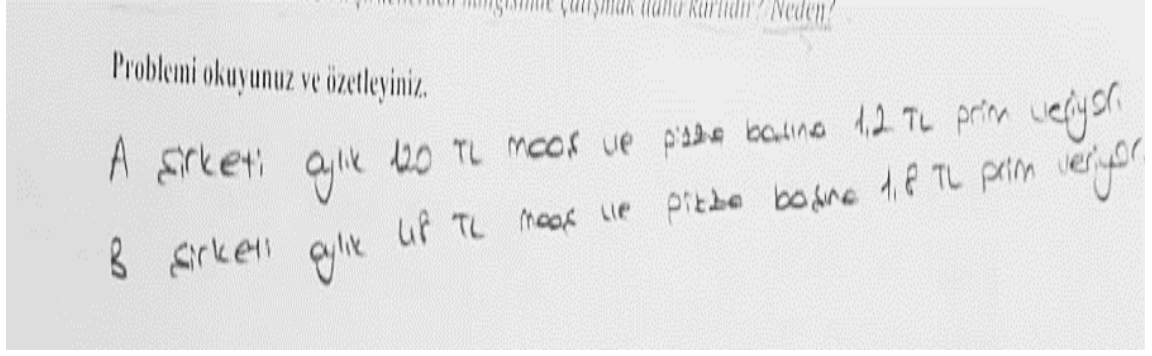 hangisinde çalışmak daha karlıdır? Neden?
Problemi okuyunuz ve özetleyiniz.
A şirketi aylık 120 TL maaş ve pizza başına 1,2 TL prim veriyor.
B şirketi aylık 48 TL maaş ve pizza başına 1,8 TL prim veriyor.